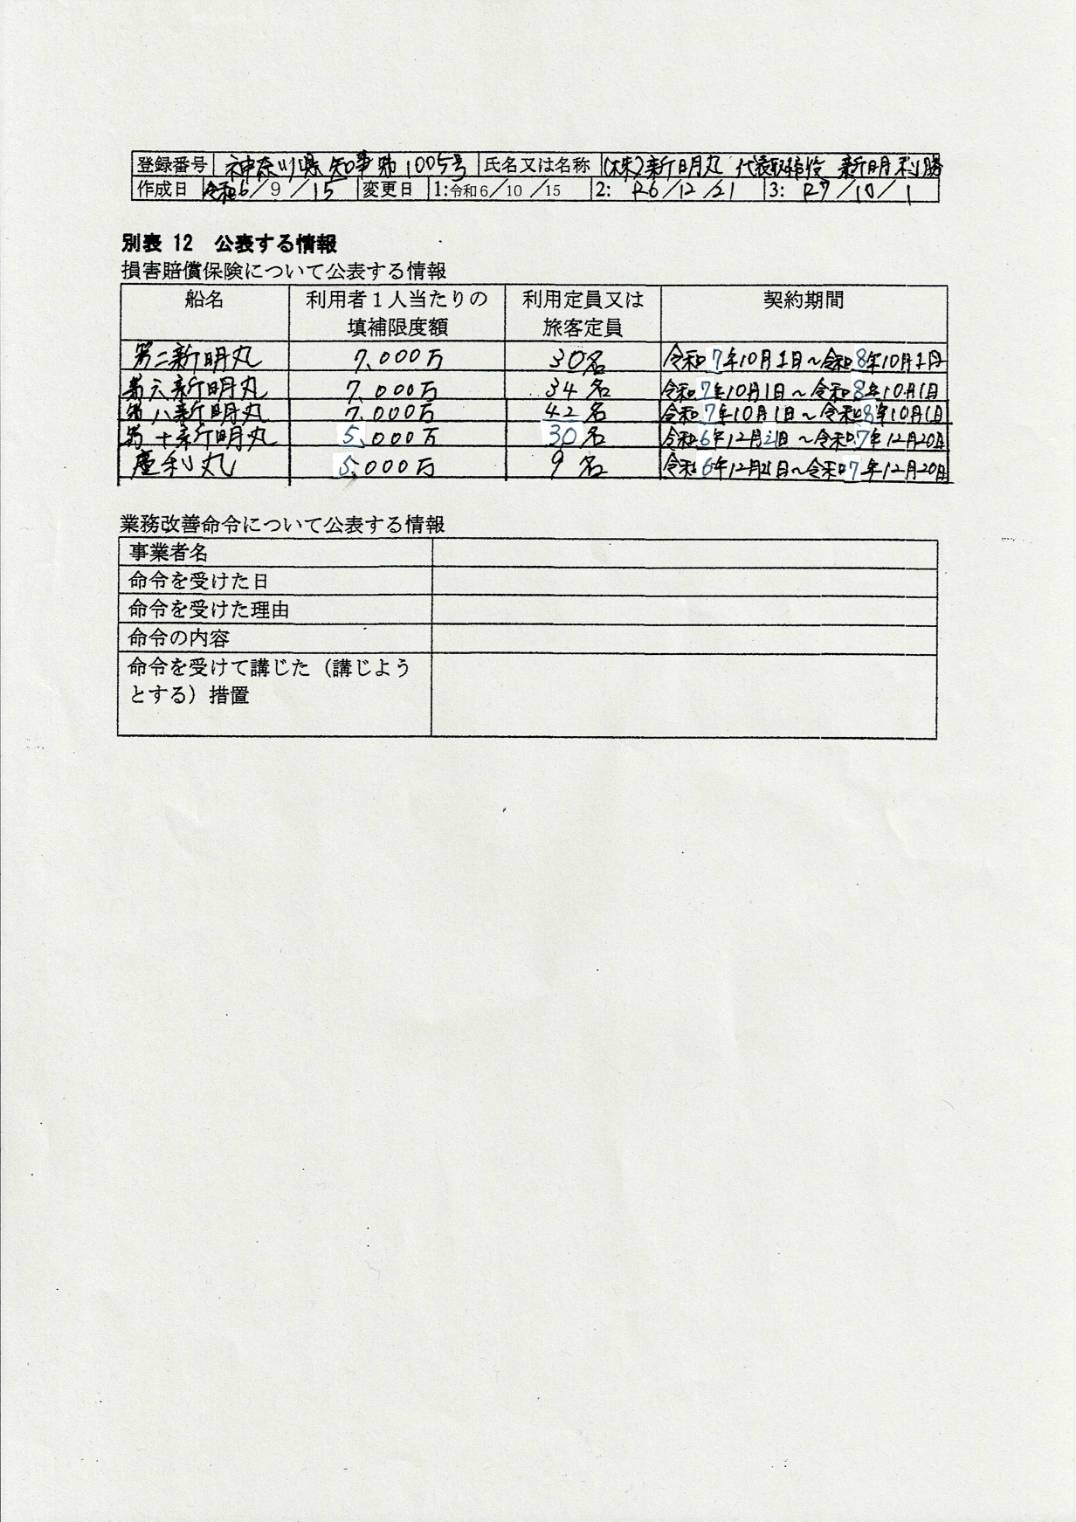 登録番号 神奈川県知事第1005号 氏名又は名称 (株)新明丸 代表取締役 新明利勝
作成日 令和6/9/15 変更日 1:令和6/10/15 2: R6/12/21 3: R7/10/1
別表 12 公表する情報
損害賠償保険について公表する情報
船名 利用者1人当たりの填補限度額 利用定員又は旅客定員 契約期間
第二新明丸 7,000万 30名 令和7年10月1日~令和8年10月1日
第六新明丸 7,000万 34名 令和7年10月1日~令和8年10月1日
第八新明丸 7,000万 42名 令和7年10月1日~令和8年10月1日
第十新明丸 5,000万 30名 令和6年12月21日~令和7年12月20日
利丸 5,000万 9名 令和6年12月21日~令和7年12月20日
業務改善命令について公表する情報
事業者名
命令を受けた日
命令を受けた理由
命令の内容
命令を受けて講じた(講じよう
とする)措置